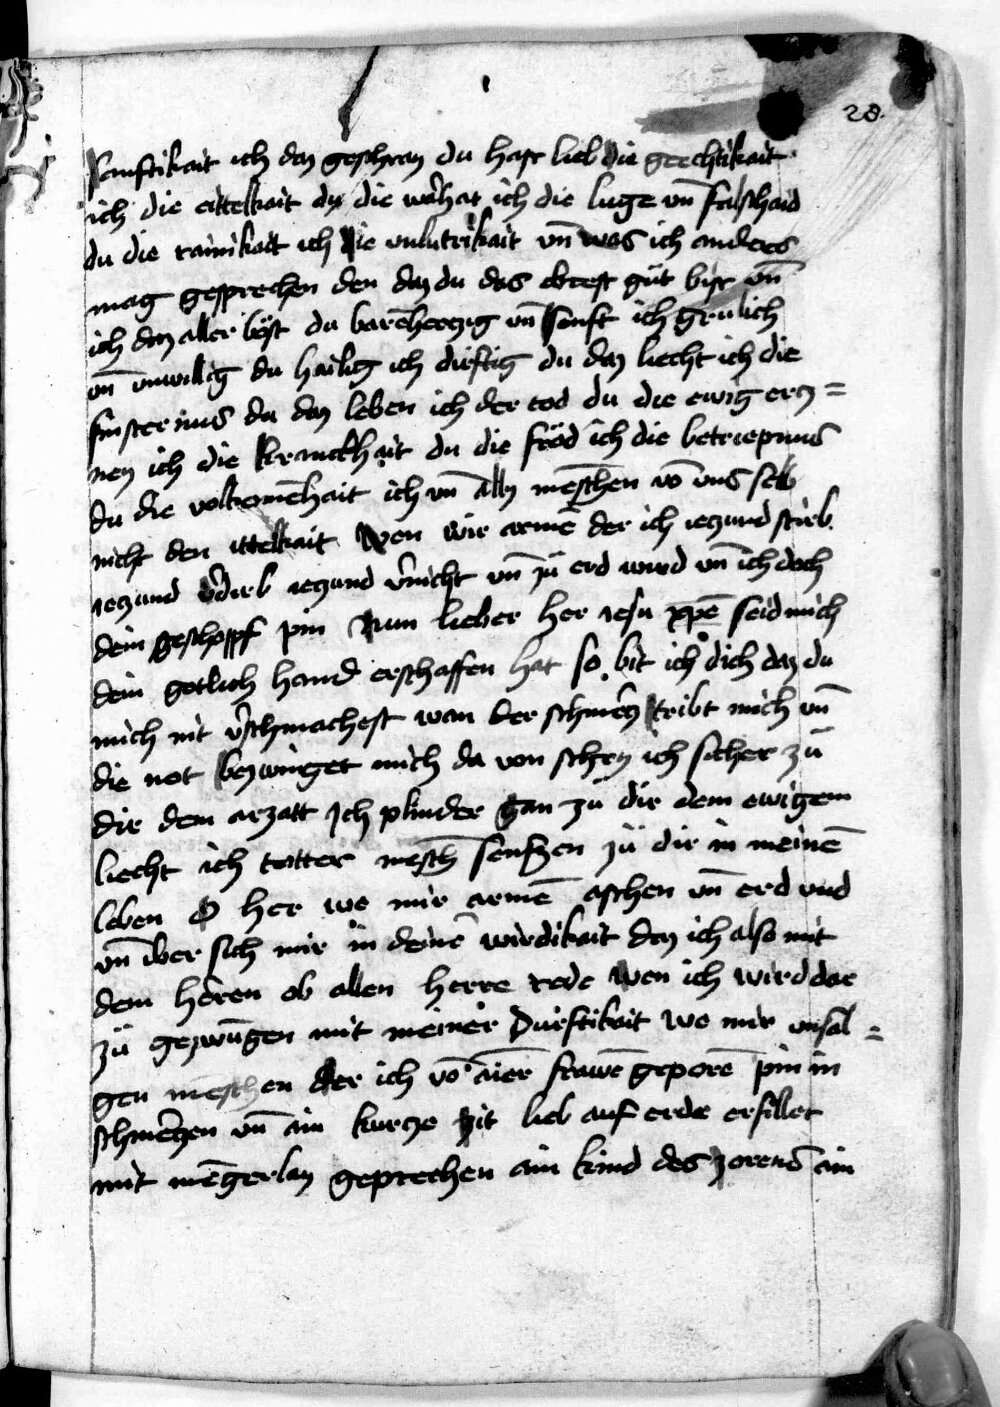 28.
sanftikait ich daz geschray du hast lieb die gerechtikait
ich die eittelkait du die warhat ich die luge vn̄ falschaid
du die rainikait ich die vnlutrikait vn̄ was ich anders
mag gesprechen den daz du das obrest gůt bist vn̄
ich daz aller böst du barēherczig vn̄ sanft ich grulich
vn̄ vnwillig du hailig ich dürftig du daz liecht ich die
finsternus du daz leben ich der tod du die ewig ercz=
ney ich die kranckhait du die fröd ich die betriepnus
du die volkomēhait ich vn̄ allz mēschen vō vns selb
nicht den ittelkait Wen wir armē der ich ieczund stirb
ieczund v̄dirb ieczund v̄nicht vn̄ zů erd wird vn̄ ich doch
dein geschopff pin Nun lieber her iesu xp̄e seid mich
dein gotlich hand erschaffen hat so bit ich dich daz du
mich nit v̄schmachest wan der schmercz tribt mich vn̄
die not bezwinget mich da von schry ich sicher zů
dir dem arzatt Ich plinder gan zů dir dem ewigem
liecht ich totter mēsch seufczen zů dir in meinē
leben O her we mir armē aschen vn̄ erd vnd
vn̄ iber sich mir in deinē wirdikait daz ich also mit
dem heren ob allen herre rede Wen ich wird dar
zů gezwūgen mit meiner dürftikait we mir vnsäl=
gen mēschen der ich vō ainer frawē geporē pin in
schmerczen vn̄ ain kurcze zit leb auf erde erfillet
mit mēgerlay geprechen ain kind des zorens ain